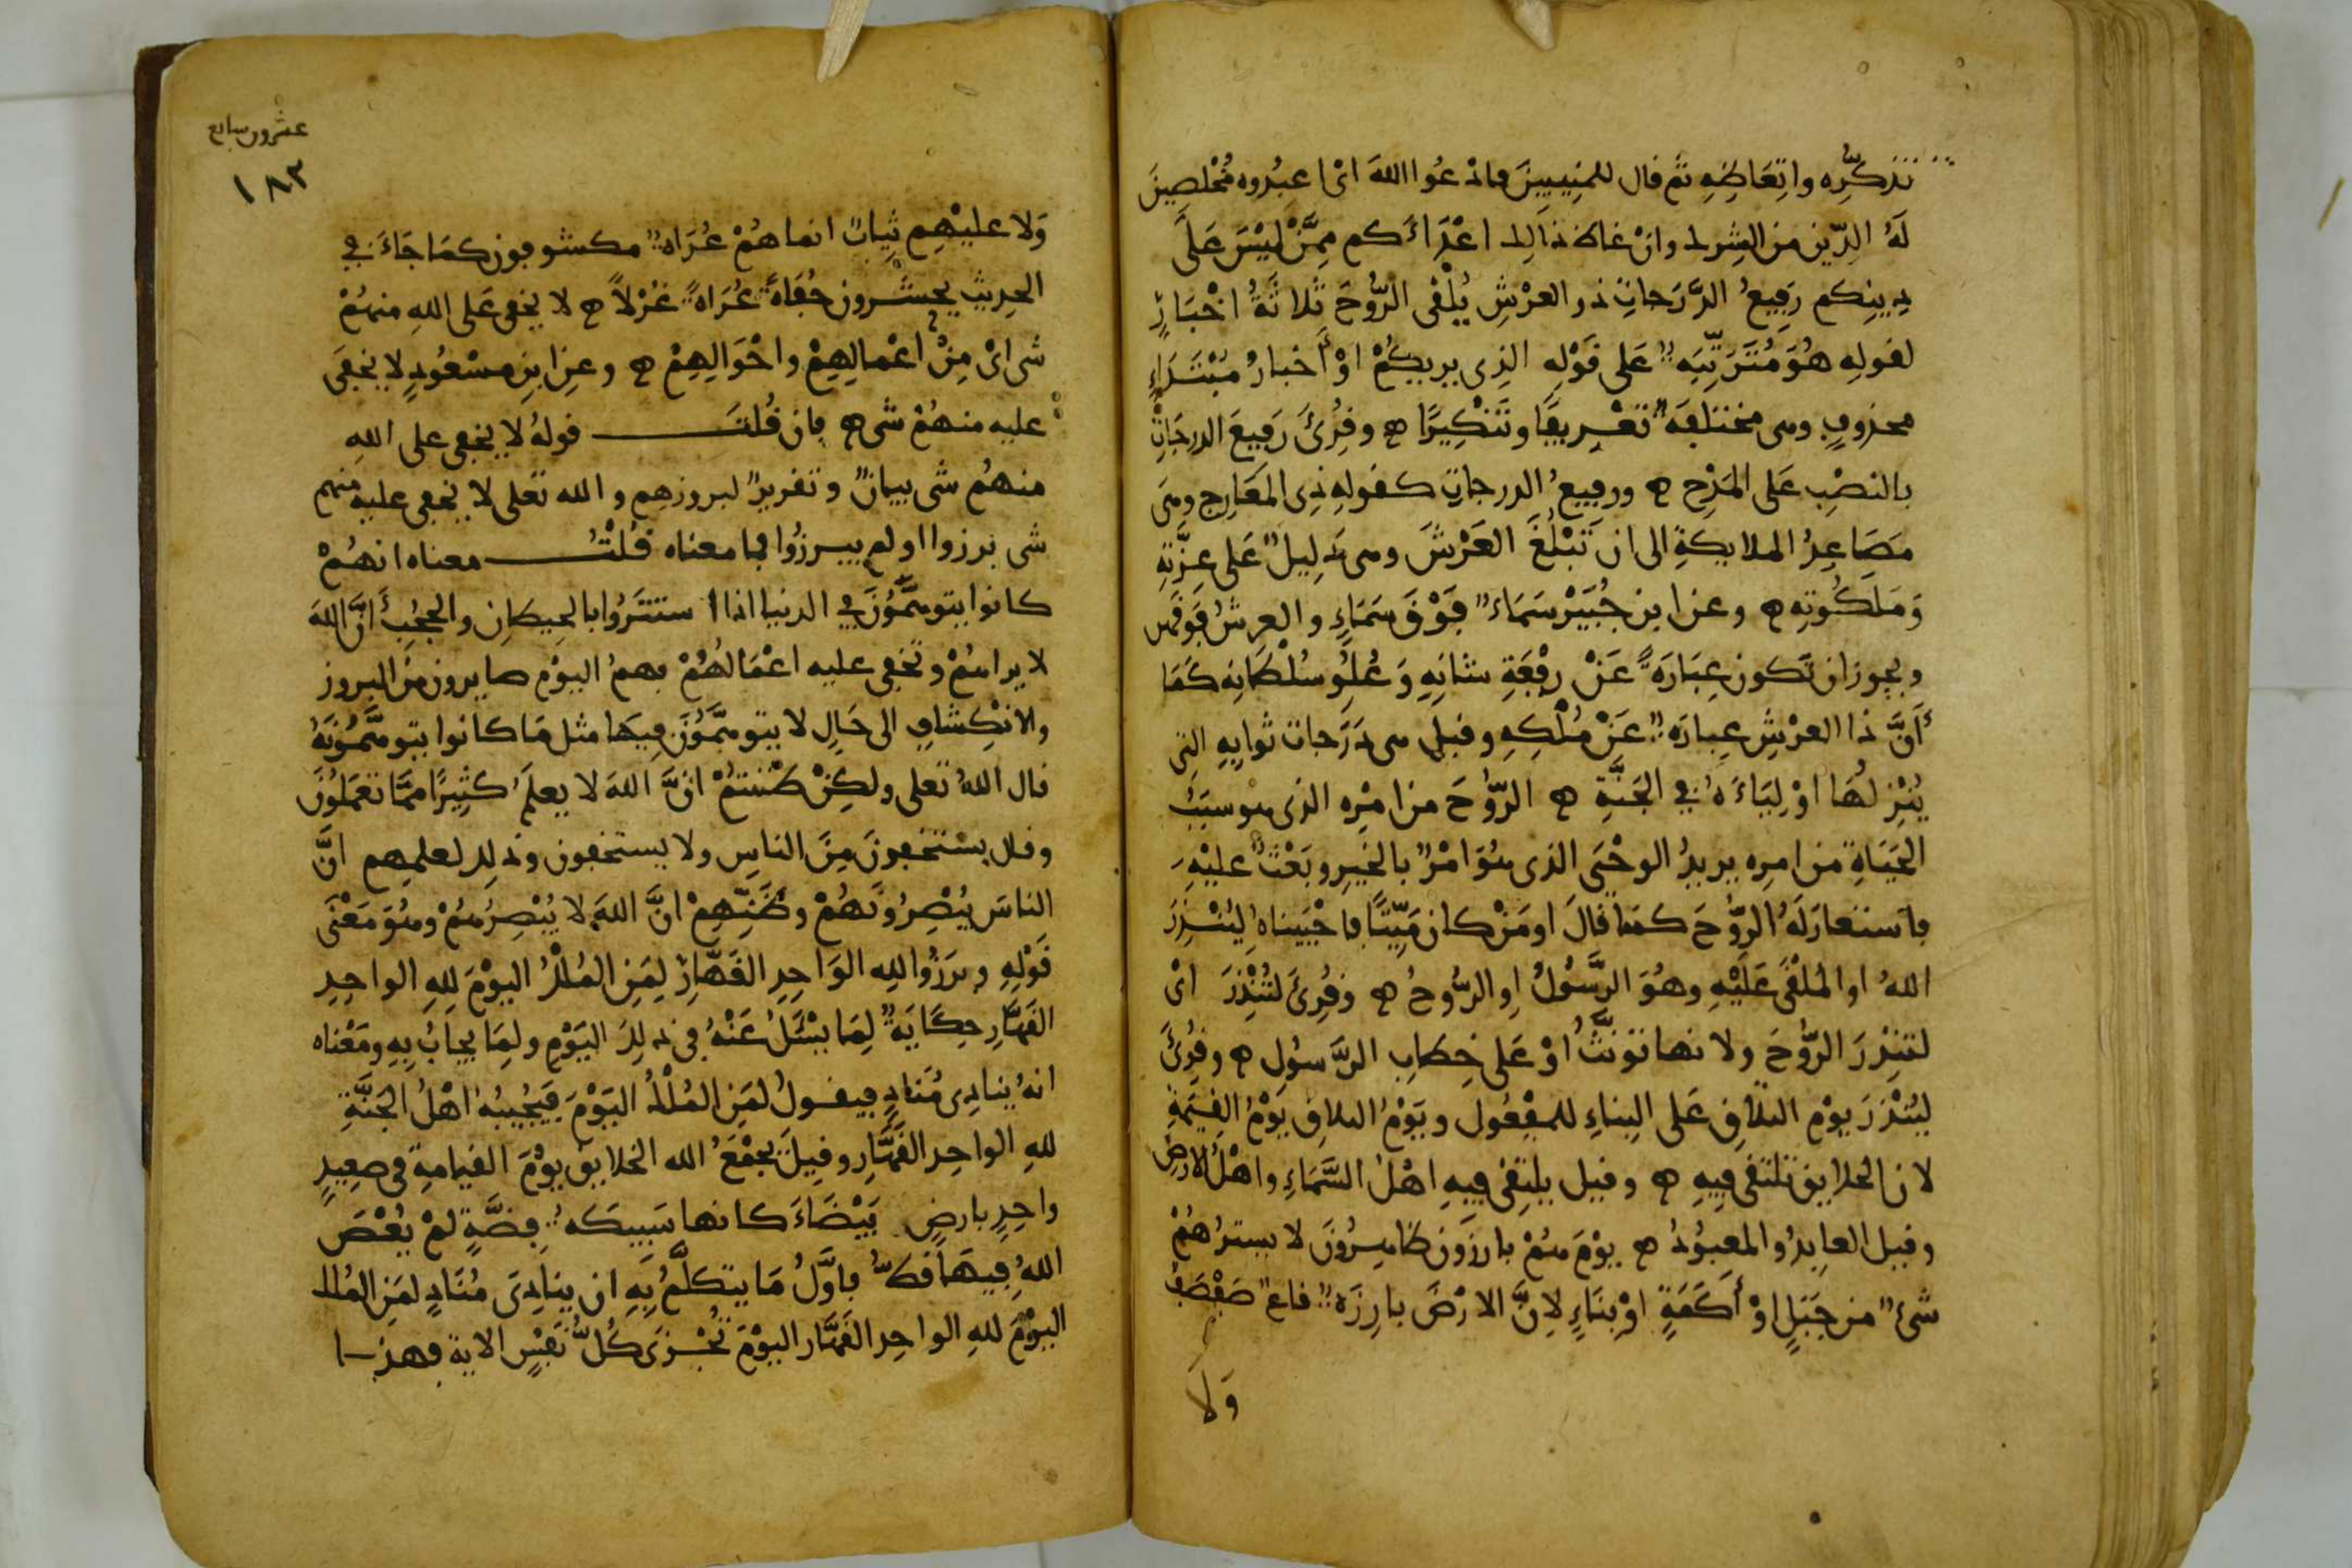 تذكُّره واتِّعاظِهِ ثم قال للمُنِيبِينَ فادْعُوا اللهَ ائ اعبُدوه مُخْلِصِينَ
لَهُ الدِّين من الشِرك وانْ غاظ ذلك اعْدَاءَكم مِمَّنْ ليْسَ عَلَى
دِينِكم رَفِيعُ الدَّرَجاتِ ذو العرْشِ يُلْقى الرُّوحَ ثلاثَةُ اخْبَارٍ
لقولِه هُوَ مُتَرَتِّبَه عَلى قَوْلِهِ الذِى يريكُمْ اوْ أخبارُ مُبْتَدَاءٍ
محذوفٍ وهى مختلفَه تعْرِيفًا وتَنْكِيرًا ه وقُرِئَ رَفيعَ الدرجَاتِ
بالنصْبِ عَلى المَدْحِ ه ورفيعُ الدرجاتِ كقولِهِ ذِى المَعَارِج وهى
مَصَاعِدُ الملايكةِ الى ان تَبْلُغَ العَرْشَ وهى دَلِيلٌ عَلى عِزَّتِهِ
وَمَلَكُوتِه ه وعن ابن جُبَيْر سَمَاءٌ فَوْقَ سَمَاءٍ والعرشُ فَوقهن
ويجوز ان تَكون عِبَارَةً عَنْ رِفْعَةِ شانِهِ وَعُلُوِّ سُلْطَانِه كَمَا
أنَّ ذا العرْشِ عِبارَه عَنْ مُلْكِهِ وقيل هى دَرَجات ثوابِهِ التِى
يُنْزِلُهَا اوْلِيَاءَهُ في الجَنَّةِ ه الرُّوحَ من امْرِه الذى هو سبَبُ
الحَيَاةِ من امرِه يريدُ الوحْىَ الذى هُوَ امْرٌ بالخَيرِ وبَعْثٌ عليْهِ
فاستعارَ لَهُ الرُّوحَ كمَا قالَ اومَنْ كان مَيِّتًا فاحْيَيناهُ لِيُنْذِرَ
اللهُ او المُلْقَى عَلَيْهِ وهُوَ الرَّسُولُ اوِ الرُّوحُ ه وقُرِئَ لتُنْذِرَ ائ
لتنذِرَ الرُّوحَ ولانها تؤنَّثُ اوْ عَلى خِطابِ الرَّسوُلِ ه وقُرِئَ
ليُنْذَرَ يوْم التلاقِ عَلى البِناءِ للمفْعُول ويَوْمُ التلاق يَوْمُ القِيَمَةِ
لان الخلايق تلتقى فِيهِ ه وقيل يلتِقى فِيهِ اهْلُ السَّمَاءِ واهْلُ الارضِ
وقيل العابِدُ والمعبوُدُ ه يوْمَ هُمْ بارزوُن ظاهِرُونَ لا يسترُهُمْ
شئٌ من جَبَلٍ اوْ أكَمَةٍ اوْ بِنَاءٍ لاِنَّ الارْضَ بارِزَه قاعٌ صَفْصَفٌ
وَلَا
عشرون سابع
١٨٣
وَلا عليْهِم ثِيابٌ انما هُمْ عُرَاه مكشوفون كمَا جَاءَ في
الحديثِ يحشَرون حُفاةً عُرَاةً غُرْلاً ه لا يخفى عَلى اللهِ منهُمْ
شى ائ مِنْ اعْمالِهِمْ واحْوَالِهِمْ ه وعن ابن مسْعُودٍ لا يخفَى
عليه منهُمْ شى ه فان قُلتَ قولهُ لا يخفى على اللهِ
منهُم شى بيانٌ وتقريرٌ لبروزهِم والله تعلى لا يخفى عليه منهم
شى برزوا اولم يبرزُوا فما معناه قُلْتُ معناه انهُمْ
كانوا يتوهمُونَ في الدنيا اذا استتَرُوا بالحيطانِ والحجُبِ أنَّ اللهَ
لا يراهُمْ وتخفى عليه اعْمَالُهُمْ فهمُ اليوْم صايرون من البروز
والانْكِشافِ الى حَالٍ لا يتوهَّمُونَ فيهَا مثل مَا كانوا يتوهَّمُونَهُ
قال اللهُ تعلى ولكِنْ ظنَنتُمْ انَّ اللهَ لا يعلَمُ كثِيرًا مِمَّا تعمَلُونَ
وقال يستخفونَ مِنَ الناسِ ولا يستخفون وذلِك لعلمِهم انَّ
الناسَ يُبْصِرُونَهُمْ وظَنِّهِمْ انَّ اللهَ لا يُبْصِرُهُمْ وهُوَ مَعْنَى
قَوْلِهِ وبرَزُوا للهِ الوَاحِدِ القَهَّارِ لِمَنِ المُلْكُ اليوْمَ لِلهِ الواحِدِ
القَهَّارِ حِكايَةٌ لِمَا يُسْئَلُ عَنْهُ في ذلِكَ اليَوْمِ ولِمَا يجابُ بِهِ ومَعْناه
انهُ ينادِى مُنَادٍ فيقولُ لمَنِ المُلْكُ اليَوْمَ فيُجِيبُهُ اهْلُ الجَنَّةِ
للهِ الواحِد القَهَّارِ وقيلَ يجْمَعُ الله الخلايق يوْمَ القيامةِ في صعِيدٍ
واحِدٍ بارضٍ بَيْضَاءَ كانها سَبِيكَه فِضَّةٍ لمْ يُعْصَ
اللهُ فيهَا قطُّ فاوَّلُ مَا يتكلَّمُ بِهِ ان ينادِىَ مُنَادٍ لمَنِ المُلك
اليوْمَ للهِ الواحِد القَهَّار اليوْمَ تُجْزَى كُلُّ نَفْسٍ الاية فهذا